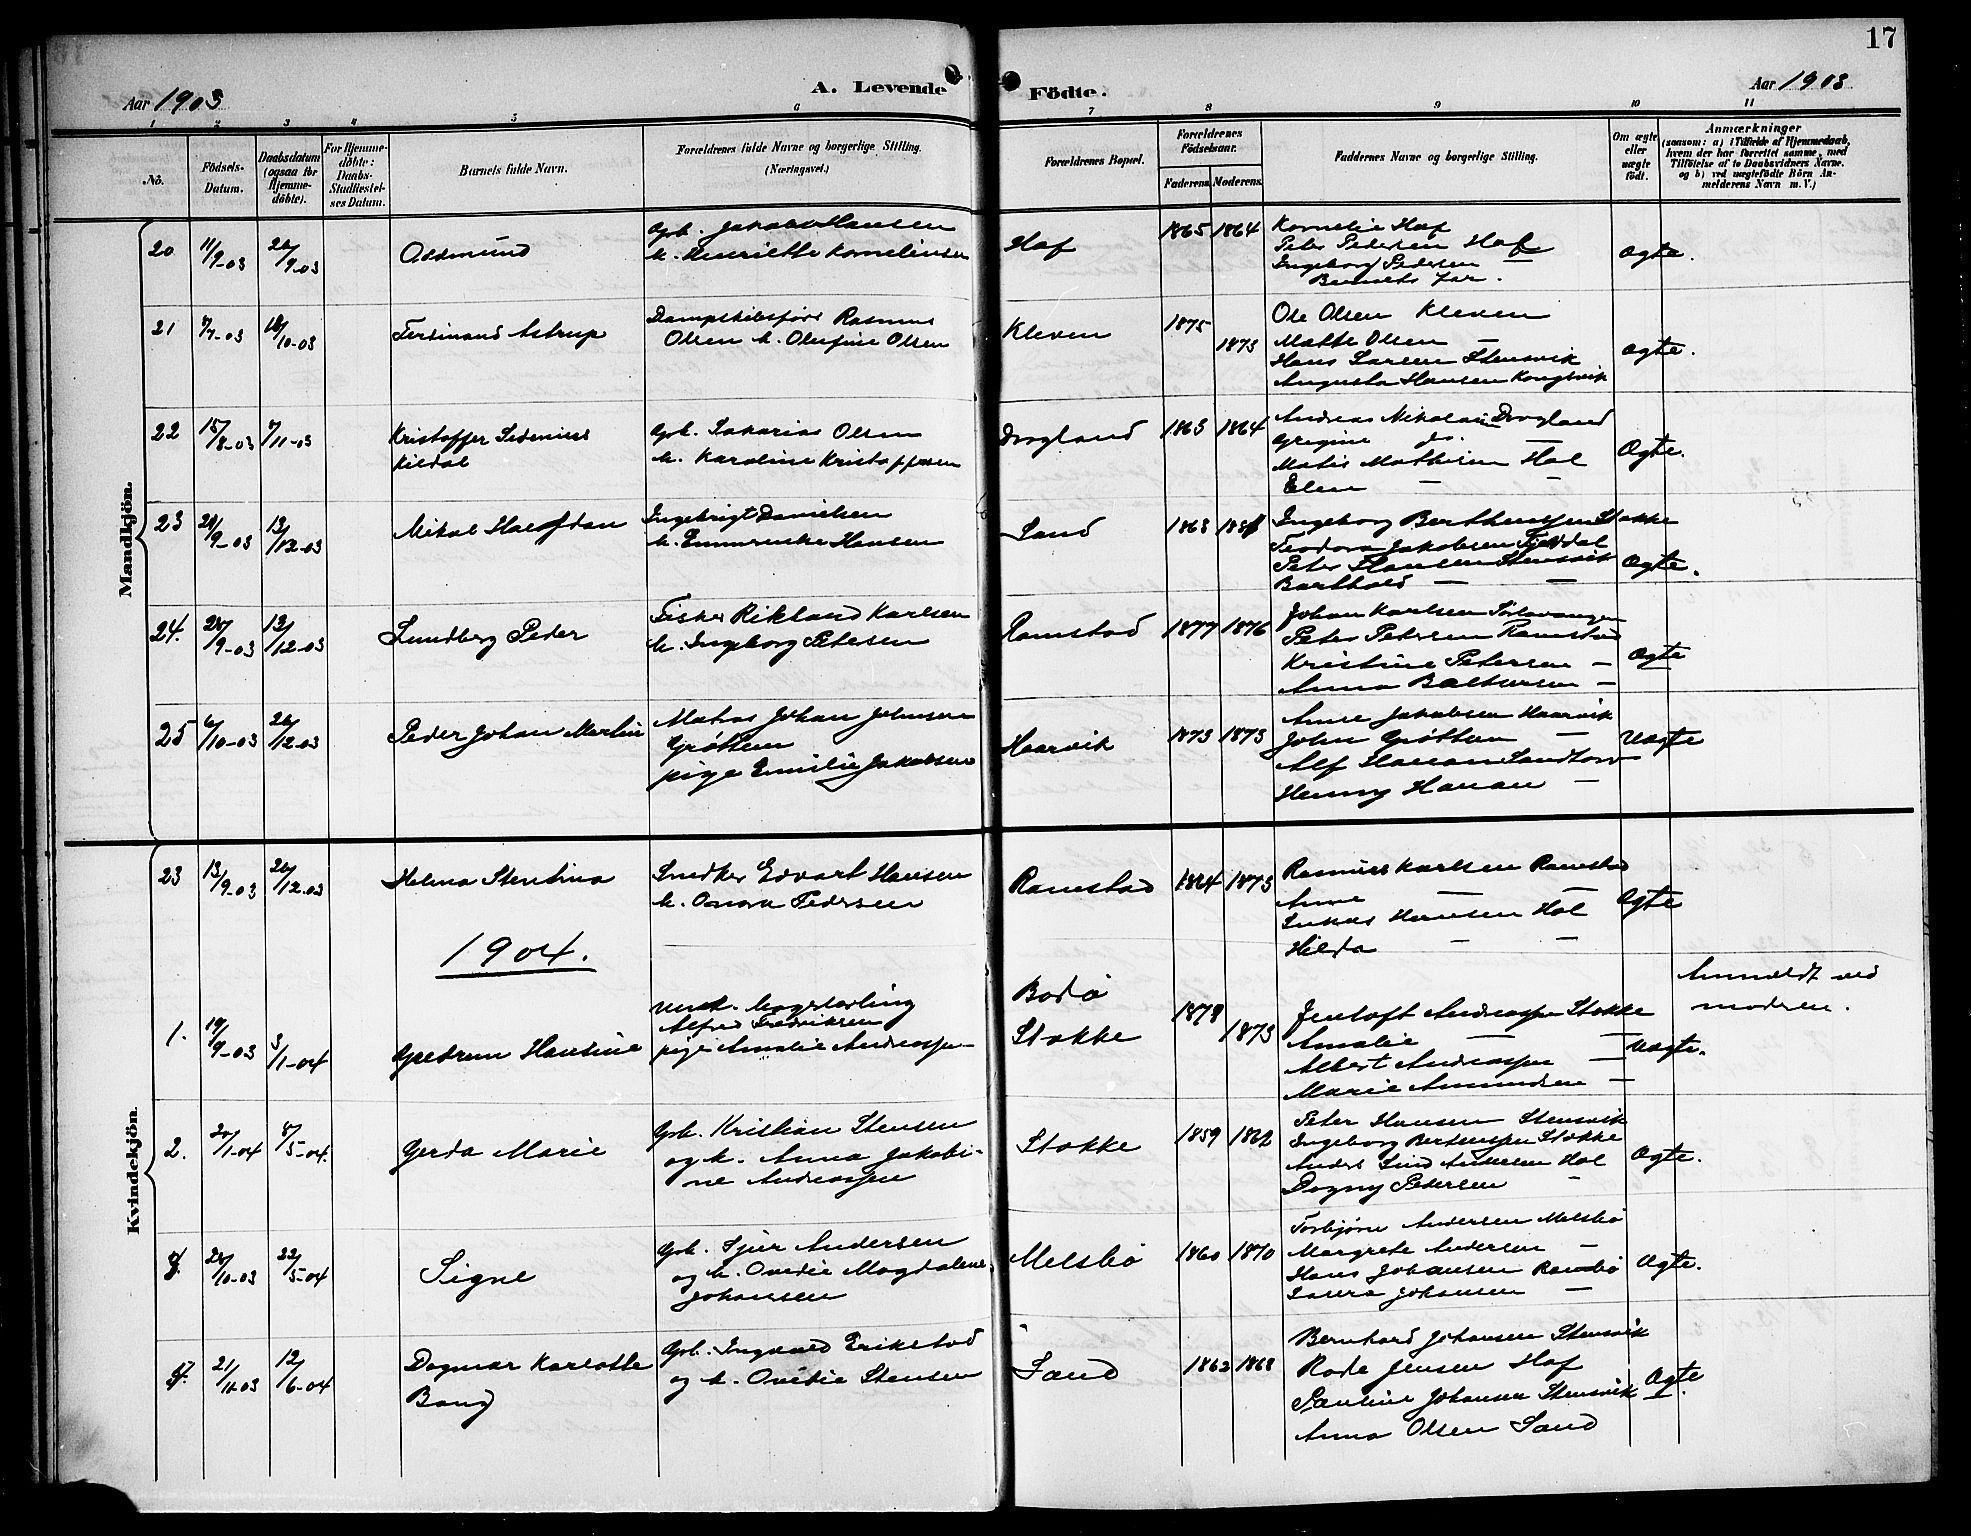 17
Aar 1903
A. Levende
Födte.
Aar 1903
1 2 3 4 5 6 7 8 9 10 11
No.
Födsels-Datum.
Daabsdatum (ogsaa for Hjemme-döbte).
For Hjemme-döbte: Daabs-Stadfæstel-ses Datum.
Barnets fulde Navn.
Forældrenes fulde Navne og borgerlige Stilling. (Næringsvei.)
Forældrenes Bopæl.
Forældrenes Födselsaar.
Faderens. Moderens.
Faddernes Navne og borgerlige Stilling.
Om ægte eller uægte födt.
Anmærkninger
(saasom: a) i Tilfælde af Hjemmedaab,
hvem der har forrettet samme, med
Tilföielse af to Daabsvidners Navne.
og b) ved uægtefödte Börn An-
melderens Navn m. V.)
Mandkjön.
20 11/9-03 26/9-03
Aasmund
Gbr. Jakob Hansen
h. Henriette Korneliusen
Haf
1865 1864
Kornelie Haf
Peter Pedersen Haf
Ingeborg Pedersen —
Barnets far.
Ægte.
21 7/7-03 18/10-03
Ferdinand Astrup
Dampskibsförer Rasmus
Olsen h. Olufine Olsen
Kleven
1875
1873
Ole Olsen Kleven
Mette Olsen —
Hans Larsen Stensvik
Augusta Hansen Kongsvik
Ægte.
22 15/8-03 7/11-03
Kristoffer Sedenius
Kildal
Gbr. Sakarias Olsen
h. Karoline Kristoffersen
Drogland
1863 1864
Andreas Nikolai Drogland
Gregine do. —
Matis Mathisen Hol
Elen — —
Ægte.
23 21/9-03 13/12-03
Mikal Halfdan
Ingebrigt Danielsen
h. Emmrentse Hansen
Sand
1863 1861
Ingeborg Bertheussen Stokke
Teodora Jakobsen Fjelldal
Peter Hansen Stensvik
Barthold — —
Ægte.
24. 28/9-03 13/12-03
Lundberg Peder
Fisker Rikland Karlsen
h. Ingeborg Petersen
Ramstad
1877 1876
Johan Karlsen
Peter Petersen Ramstad
Kristine Petersen —
Anna Baltsersen —
Ægte
25 6/10-03 26/12-03
Peder Johan Martin
Matias Johan Johnsen
Gröttem
pige Emilie Jakobsen
Haarvik
1873 1873
Anne Jakobsen Haarvik
John Gröttem —
Alf Hanan Sandtorv
Henny Hanan —
Uægte
Kvindekjön.
23 13/9-03 26/12-03
Helma Stentina
Snedker Edvart Hansen
h. Anora Pedersen
Ramstad
1864 1873
Rasmus Karlsen Ramstad
Anne — —
Lukas Hansen Hol
Hilda — —
Ægte
1904.
1. 19/9-03 3/1-04
Gudrun Hansine
Alfred Fredriksen
pige Amalie Andreassen
Bodö
Stokke
1878
1873
Jentoft Andreassen Stokke
Amalie — —
Albert Andreassen —
Marie Amundsen —
Uægte.
Anmeldt ved
modren.
2. 20/1-04 8/5-04.
Gerda Marie
Gbr. Kristian Stensen
og h. Anna Jakobi-
ne Andreassen
Stokke
1859 1862
Peter Hansen Stensvik
Ingeborg Berteussen Stokke
Anders Lind Andersen Hol
Dagny Pedersen —
Ægte.
3. 28/10-03 22/5-04
Signe
Gbr. Sjur Andersen
og h. Ovedie Magdalene
Johansen
Melsbö
1860 1870
Torbjörn Andersen Melsbö
Margrete Andersen —
Hans Johansen Ramsbö
Laura Johansen —
Ægte.
4. 21/11-03 12/6-04
Dagmar Karlotte
Bang
Gbr. Ingvald Erikstad
og h. Ovedie Stensen
Sand
1862 1868
Bernhard Johansen Stensvik
Rode Jensen Haf
Pauline Johansen Stensvik
Anna Olsen Sand
Ægte.